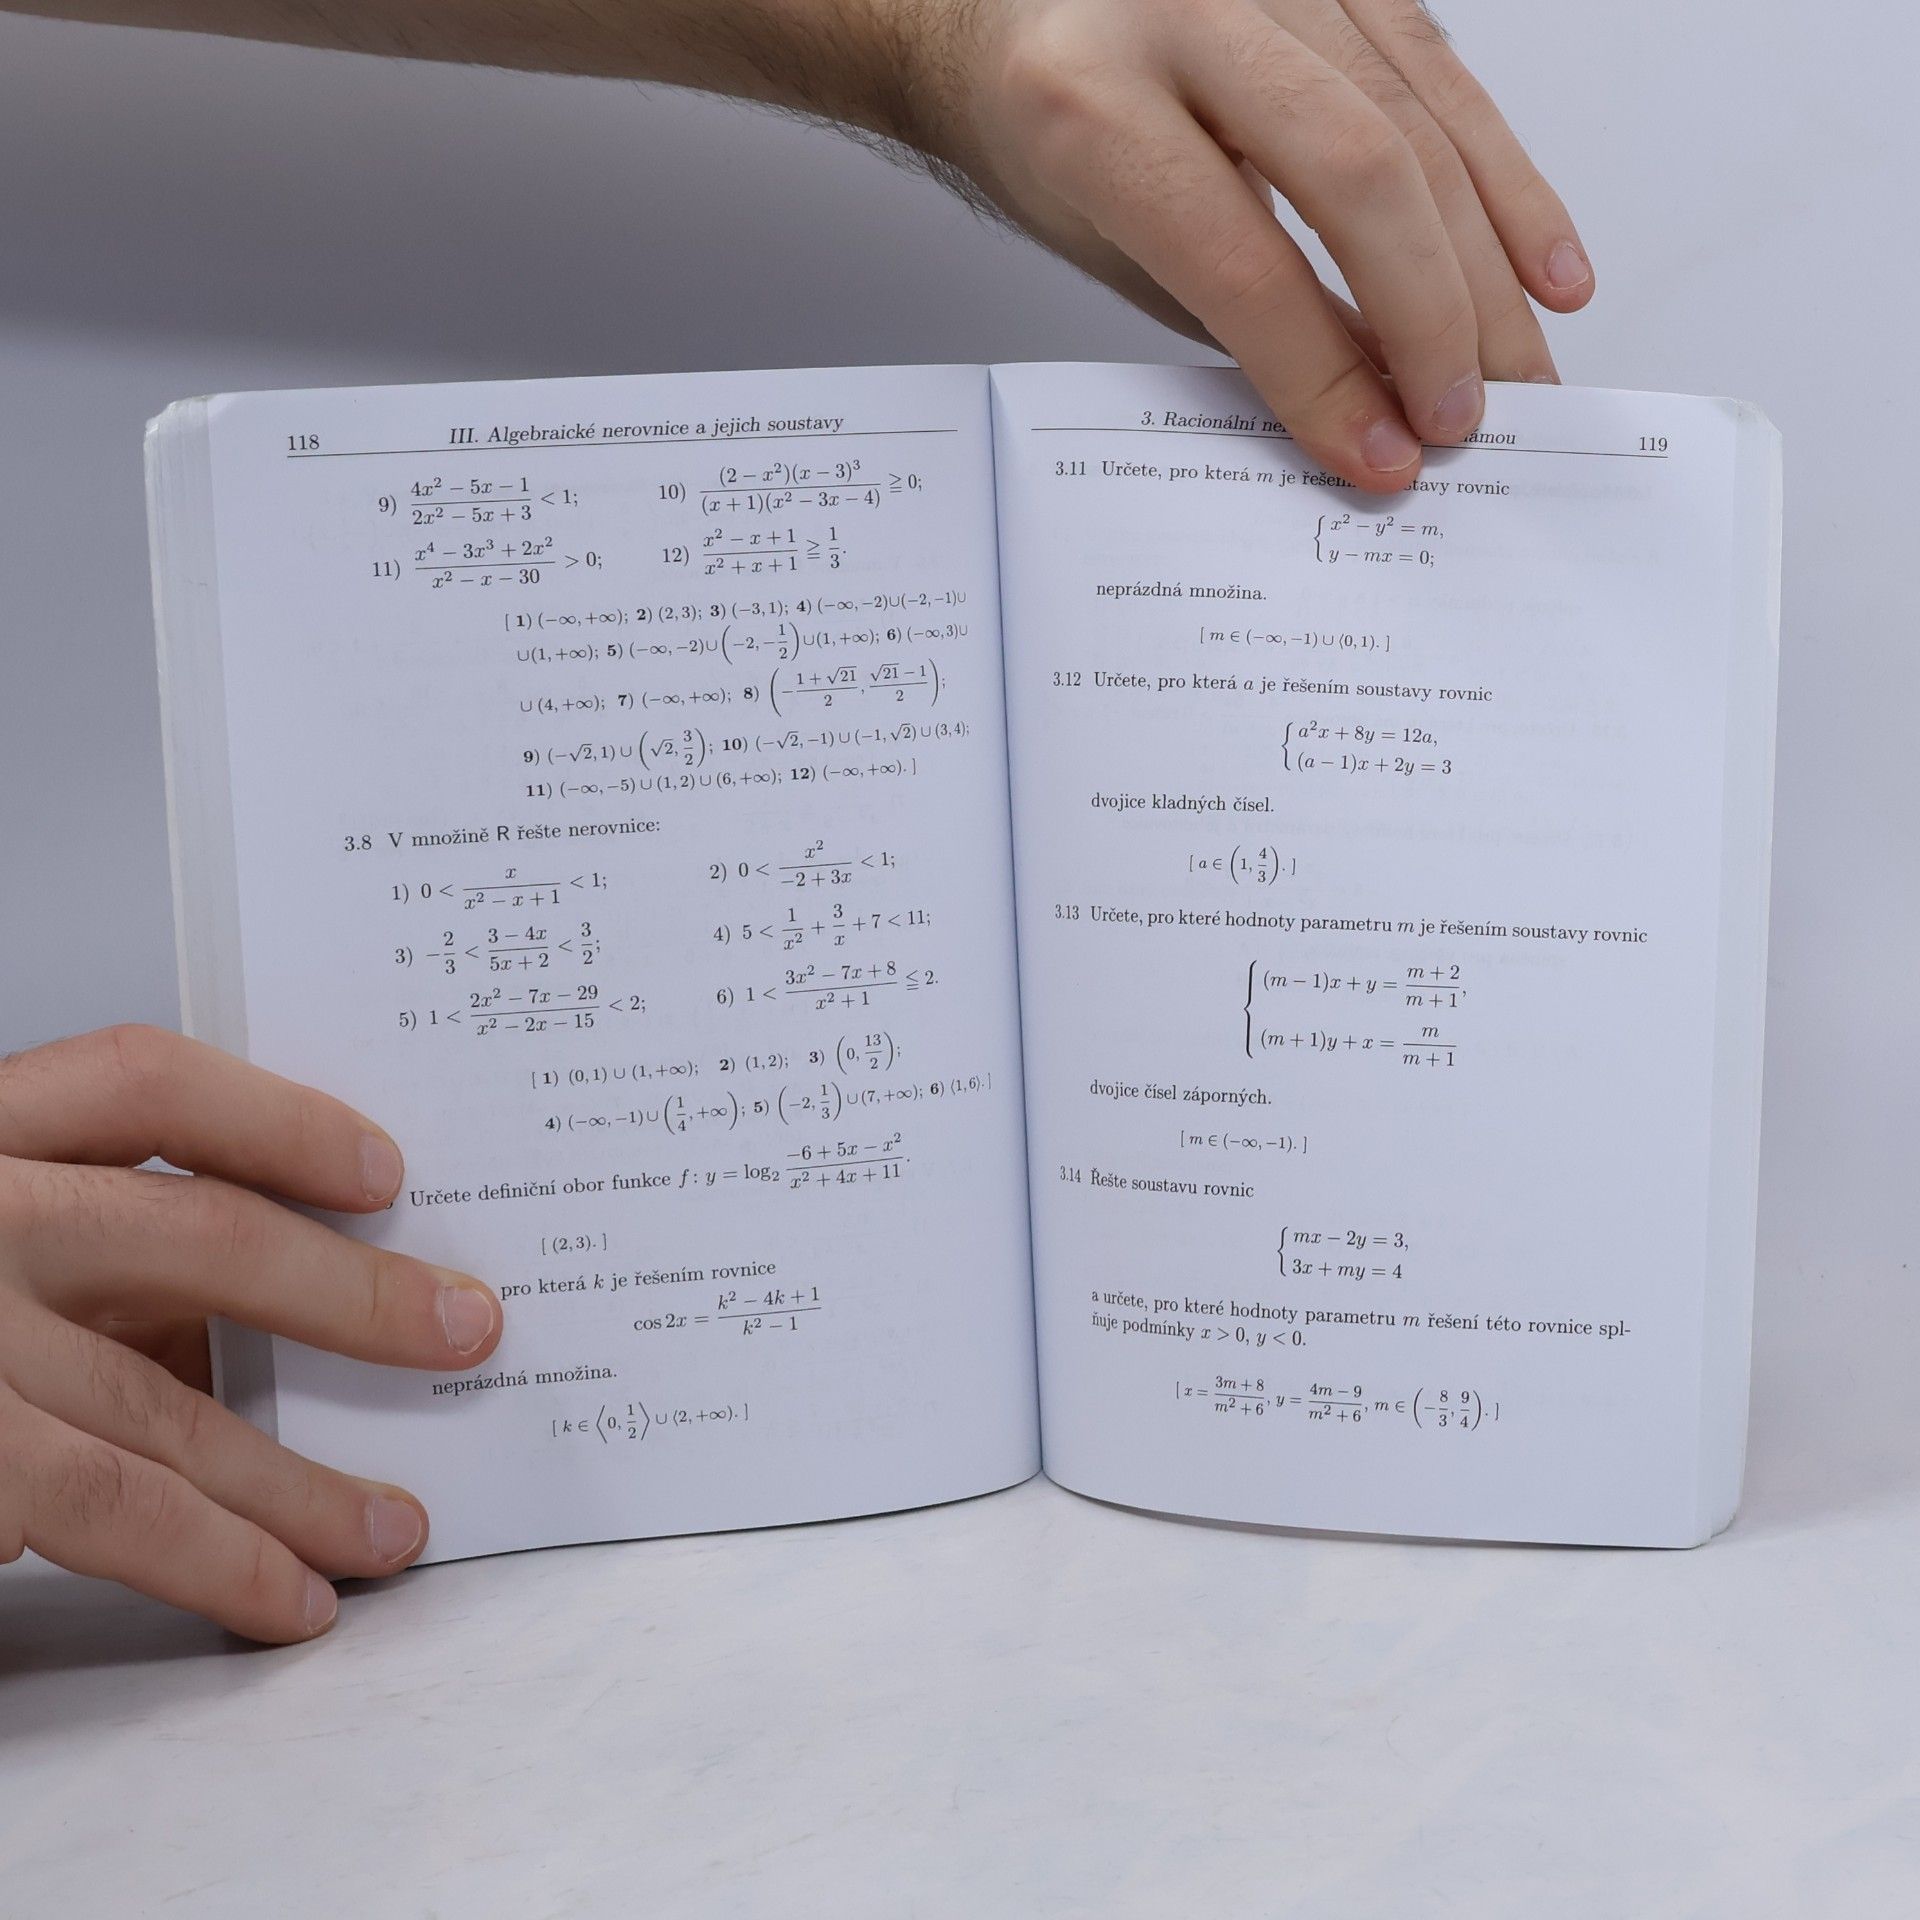 118 III. Algebraické nerovnice a jejich soustavy
9) (4x² − 5x − 1)/(2x² − 5x + 3) < 1; 10) ((2 − x²)(x − 3)³)/((x + 1)(x² − 3x − 4)) ≧ 0;
11) (x⁴ − 3x³ + 2x²)/(x² − x − 30) > 0; 12) (x² − x + 1)/(x² + x + 1) ≧ 1/3.
[ 1) (−∞, +∞); 2) (2, 3); 3) (−3, 1); 4) (−∞, −2)∪(−2, −1)∪
∪(1, +∞); 5) (−∞, −2)∪(−2, −1/2)∪(1, +∞); 6) (−∞, 3)∪
∪ (4, +∞); 7) (−∞, +∞); 8) (−(1 + √21)/2, (√21 − 1)/2);
9) (−√2, 1) ∪ (√2, 3/2); 10) (−√2, −1) ∪ (−1, √2) ∪ (3, 4);
11) (−∞, −5) ∪ (1, 2) ∪ (6, +∞); 12) (−∞, +∞). ]
3.8 V množině R řešte nerovnice:
1) 0 < x/(x² − x + 1) < 1; 2) 0 < x²/(−2 + 3x) < 1;
3) −2/3 < (3 − 4x)/(5x + 2) < 3/2; 4) 5 < 1/x² + 3/x + 7 < 11;
5) 1 < (2x² − 7x − 29)/(x² − 2x − 15) < 2; 6) 1 < (3x² − 7x + 8)/(x² + 1) ≦ 2.
[ 1) (0, 1) ∪ (1, +∞); 2) (1, 2); 3) (0, 13/2);
4) (−∞, −1)∪(1/4, +∞); 5) (−2, 1/3)∪(7, +∞); 6) ⟨1, 6⟩. ]
Určete definiční obor funkce f : y = log₂ (−6 + 5x − x²)/(x² + 4x + 11).
[ (2, 3). ]
pro která k je řešením rovnice
cos 2x = (k² − 4k + 1)/(k² − 1)
neprázdná množina.
[ k ∈ ⟨0, 1/2⟩ ∪ ⟨2, +∞). ]
3. Racionální 119
3.11 Určete, pro která m je rovnic
{ x² − y² = m,
y − mx = 0;
neprázdná množina.
[ m ∈ (−∞, −1) ∪ ⟨0, 1). ]
3.12 Určete, pro která a je řešením soustavy rovnic
{ a²x + 8y = 12a,
(a − 1)x + 2y = 3
dvojice kladných čísel.
[ a ∈ (1, 4/3). ]
3.13 Určete, pro které hodnoty parametru m je řešením soustavy rovnic
{ (m − 1)x + y = (m + 2)/(m + 1),
(m + 1)y + x = m/(m + 1)
dvojice čísel záporných.
[ m ∈ (−∞, −1). ]
3.14 Řešte soustavu rovnic
{ mx − 2y = 3,
3x + my = 4
a určete, pro které hodnoty parametru m řešení této rovnice spl-
ňuje podmínky x > 0, y < 0.
[ x = (3m + 8)/(m² + 6), y = (4m − 9)/(m² + 6), m ∈ (−8/3, 9/4). ]